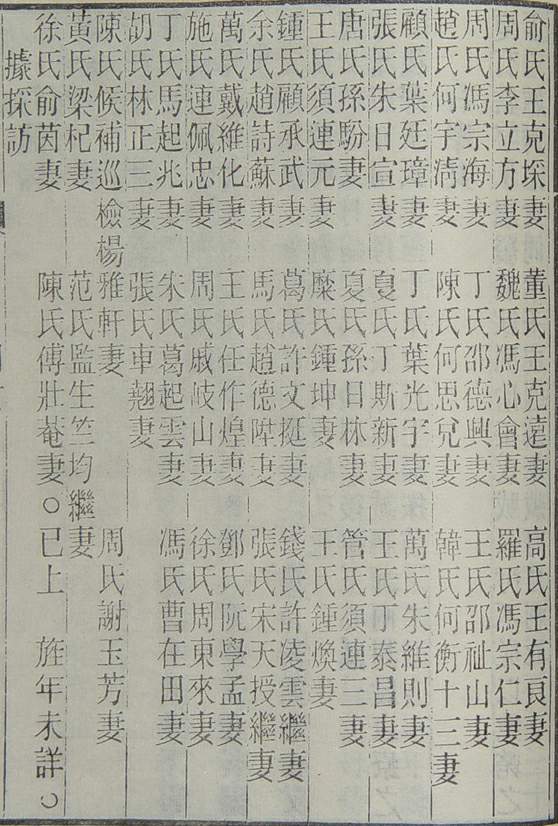 俞氏王克琛妻　董氏王克遠妻　高氏王有良妻
周氏李立方妻　魏氏馮心會妻　羅氏馮宗仁妻
周氏馮宗海妻　丁氏邵德興妻　王氏邵祉山妻
趙氏何宇清妻　陳氏何思兌妻　韓氏何衡十三妻
顧氏葉廷璋妻　丁氏葉光宇妻　萬氏朱維則妻
張氏朱日宣妻　夏氏丁斯新妻　王氏丁泰昌妻
唐氏孫馚妻　夏氏孫日林妻　管氏須連三妻
王氏須連元妻　糜氏鍾坤妻　王氏鍾煥妻
鍾氏顧承武妻　葛氏許文挺妻　錢氏許凌雲繼妻
余氏趙詩蘇妻　馬氏趙德陞妻　張氏宋天授繼妻
萬氏戴維化妻　王氏任作煌妻　鄧氏阮學孟妻
施氏連佩忠妻　周氏戚岐山妻　徐氏周東來妻
丁氏馬起兆妻　朱氏葛起雲妻　馮氏曹在田妻
胡氏林正三妻　張氏車翹妻
陳氏候補巡檢楊雅軒妻　周氏謝玉芳妻
黃氏梁杞妻　范氏監生竺均繼妻
徐氏俞茵妻　陳氏傅壯菴妻○已上　旌年未詳○
據採訪